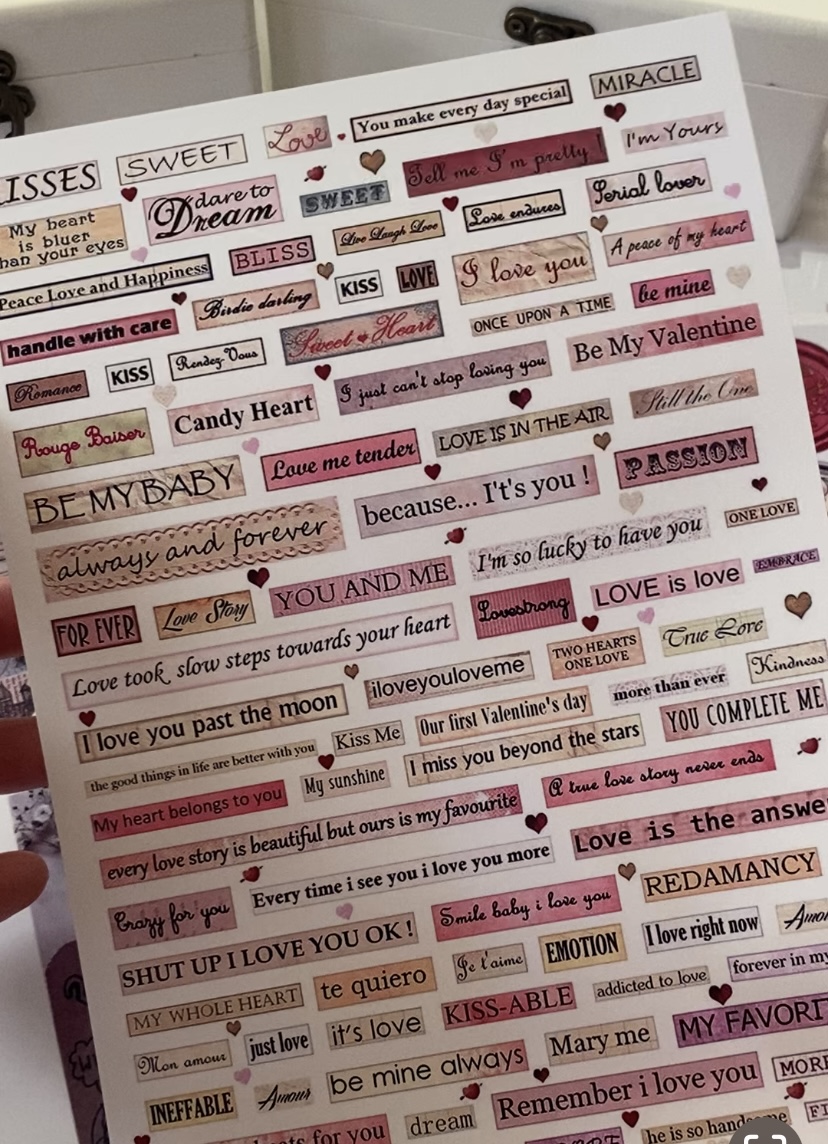 ISSES
SWEET
Love
You make every day special
MIRACLE
My heart
is bluer
han your eyes
dare to
Dream
SWEET
Tell me I'm pretty !
I'm Yours
Peace Love and Happiness
BLISS
Live Laugh Love
Love endures
Serial lover
handle with care
Birdie darling
KISS
LOVE
I love you
A peace of my heart
Romance
KISS
Rendez-Vous
Sweet Heart
ONCE UPON A TIME
be mine
Rouge Baiser
Candy Heart
I just can't stop loving you
Be My Valentine
BE MY BABY
Love me tender
LOVE IS IN THE AIR
Still the One
always and forever
because... I't's you !
PASSION
FOR EVER
Love Story
YOU AND ME
I'm so lucky to have you
ONE LOVE
Love took slow steps towards your heart
Lovestrong
LOVE is love
EMBRACE
I love you past the moon
iloveyouloveme
TWO HEARTS
ONE LOVE
True Love
the good things in life are better with you
Kiss Me
Our first Valentine's day
more than ever
Kindness
My heart belongs to you
My sunshine
I miss you beyond the stars
YOU COMPLETE ME
every love story is beautiful but ours is my favourite
A true love story never ends
Crazy for you
Every time i see you i love you more
Love is the answe
SHUT UP I LOVE YOU OK !
Smile baby i love you
REDAMANCY
MY WHOLE HEART
te quiero
Je t'aime
EMOTION
I love right now
Amou
Mon amour
just love
it's love
KISS-ABLE
addicted to love
forever in my
INEFFABLE
Amour
be mine always
Mary me
MY FAVORIT
for you
dream
Remember i love you
MORE
he is so handsome